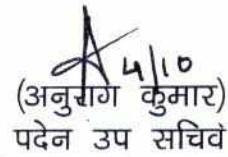 4/10
(अनुराग कुमार)
पदेन उप सचिव